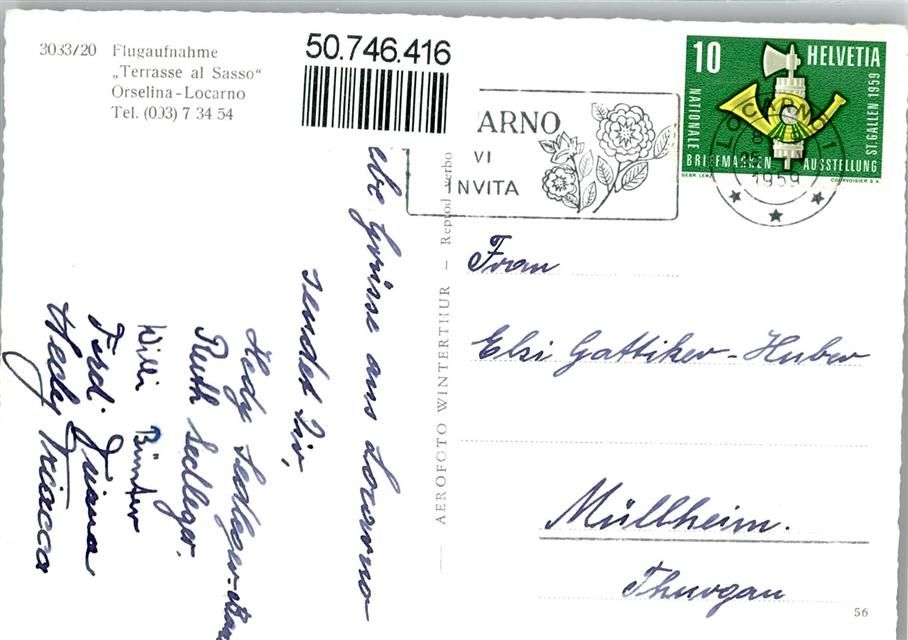 3033/20 Flugaufnahme
„Terrasse al Sasso“
Orselina-Locarno
Tel. (093) 7 34 54
50.746.416
ARNO
VI
INVITA
10 HELVETIA
NATIONALE
BRIEFMARKEN AUSSTELLUNG
ST. GALLEN 1959
GEBR. LENZ COURVOISIER S.A.
LOCARNO 1
1959
Frau
Elsi Gattiker-Huber
Müllheim.
Thurgau
56
AEROFOTO WINTERTHUR – Reprod. verbo
ebe Grüsse aus Locarno
sendet Dir,
Hedy Sedleger-
Ruth Sedleger.
Willi Bünter
Ferd.
Hedy Triacca